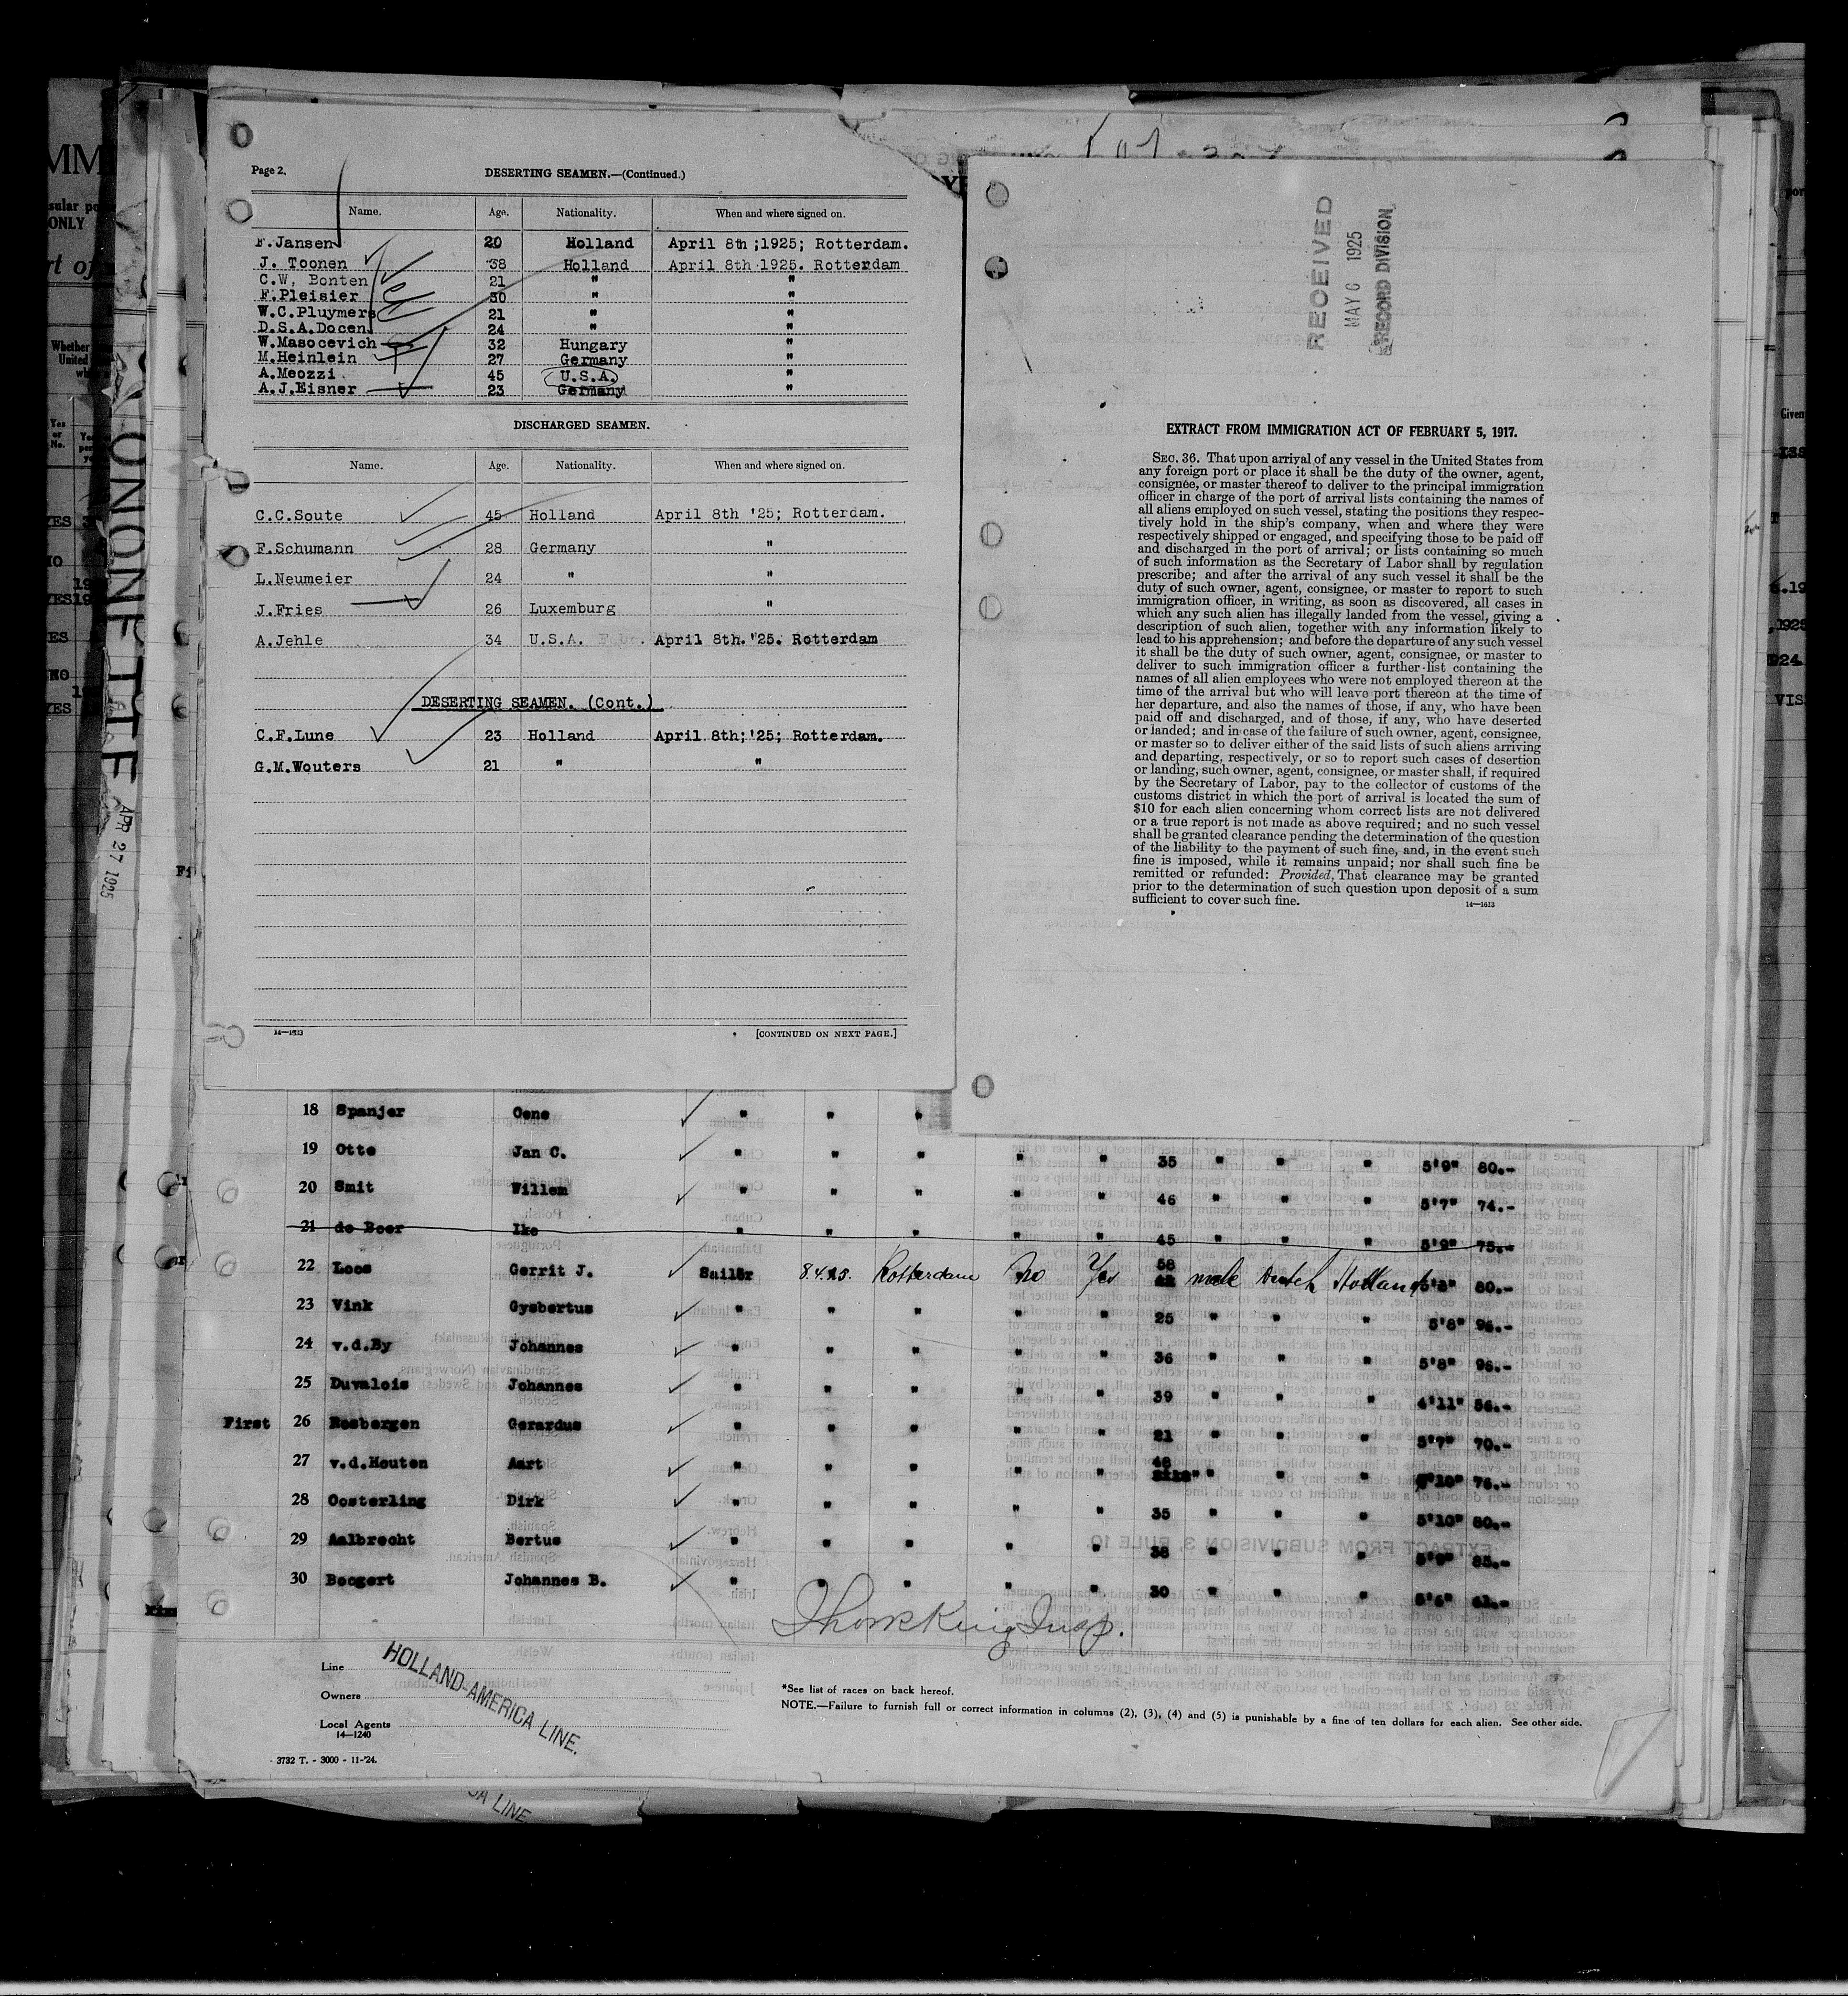 Page 2.
DESERTING SEAMEN.—(Continued.)
Name. Age. Nationality. When and where signed on.
F.Jansen 20 Holland April 8th ;1925; Rotterdam.
J. Toonen 38 Holland April 8th 1925. Rotterdam
C.W, Bonten 21 " "
F.Pleisier 30 " "
W.C.Pluymers 21 " "
D.S.A.Docen 24 " "
W.Masocevich 32 Hungary "
M.Heinlein 27 Germany "
A.Meozzi 45 U.S.A. "
A.J.Eisner 23 Germany "
DISCHARGED SEAMEN.
Name. Age. Nationality. When and where signed on.
C.C.Soute 45 Holland April 8th '25; Rotterdam.
F.Schumann 28 Germany "
L.Neumeier 24 " "
J.Fries 26 Luxemburg "
A.Jehle 34 U.S.A. April 8th. '25. Rotterdam
DESERTING SEAMEN. (Cont.)
C.F.Lune 23 Holland April 8th; '25; Rotterdam.
G.M.Wouters 21 " "
14—1613
[CONTINUED ON NEXT PAGE.]
RECEIVED
MAY 6 1925
RECORD DIVISION
EXTRACT FROM IMMIGRATION ACT OF FEBRUARY 5, 1917.
SEC. 36. That upon arrival of any vessel in the United States from
any foreign port or place it shall be the duty of the owner, agent,
consignee, or master thereof to deliver to the principal immigration
officer in charge of the port of arrival lists containing the names of
all aliens employed on such vessel, stating the positions they respec-
tively hold in the ship's company, when and where they were
respectively shipped or engaged, and specifying those to be paid off
and discharged in the port of arrival; or lists containing so much
of such information as the Secretary of Labor shall by regulation
prescribe; and after the arrival of any such vessel it shall be the
duty of such owner, agent, consignee, or master to report to such
immigration officer, in writing, as soon as discovered, all cases in
which any such alien has illegally landed from the vessel, giving a
description of such alien, together with any information likely to
lead to his apprehension; and before the departure of any such vessel
it shall be the duty of such owner, agent, consignee, or master to
deliver to such immigration officer a further list containing the
names of all alien employees who were not employed thereon at the
time of the arrival but who will leave port thereon at the time of
her departure, and also the names of those, if any, who have been
paid off and discharged, and of those, if any, who have deserted
or landed; and in case of the failure of such owner, agent, consignee,
or master so to deliver either of the said lists of such aliens arriving
and departing, respectively, or so to report such cases of desertion
or landing, such owner, agent, consignee, or master shall, if required
by the Secretary of Labor, pay to the collector of customs of the
customs district in which the port of arrival is located the sum of
$10 for each alien concerning whom correct lists are not delivered
or a true report is not made as above required; and no such vessel
shall be granted clearance pending the determination of the question
of the liability to the payment of such fine, and, in the event such
fine is imposed, while it remains unpaid; nor shall such fine be
remitted or refunded: Provided, That clearance may be granted
prior to the determination of such question upon deposit of a sum
sufficient to cover such fine.
14—1613
APR 27 1925
18 Spanjer Oene " " "
19 Otte Jan C. " " " " " 35 " " " 5'9" 80.-
20 Smit Willem " " " " " 46 " " " 5'7" 74.-
21 de Boer Ike " " " " " 45 " " " 5'9" 75.-
22 Loos Gerrit J. Sailor 8.4.25. Rotterdam No Yes 58 male Dutch Holland 5'8" 80.-
23 Vink Gysbertus " " " " " 25 " " " 5'8" 96.-
24 v.d.By Johannes " " " " " 36 " " " 5'8" 96.-
25 Duvalois Johannes " " " " " 39 " " " 4'11" 56.-
First 26 Rosbergen Gerardus " " " " " 21 " " " 5'7" 70.-
27 v.d.Houten Aart " " " " " 48 " " " 5'10" 76.-
28 Oosterling Dirk " " " " " 35 " " " 5'10" 80.-
29 Aalbrecht Bertus " " " " " 38 " " " 5'9" 85.-
30 Boogert Johannes B. " " " " " 30 " " " 5'6"
Line
Owners
Local Agents
14—1240
HOLLAND-AMERICA LINE.
*See list of races on back hereof.
NOTE.—Failure to furnish full or correct information in columns (2), (3), (4) and (5) is punishable by a fine of ten dollars for each alien. See other side.
3732 T. - 3000 - 11-'24.